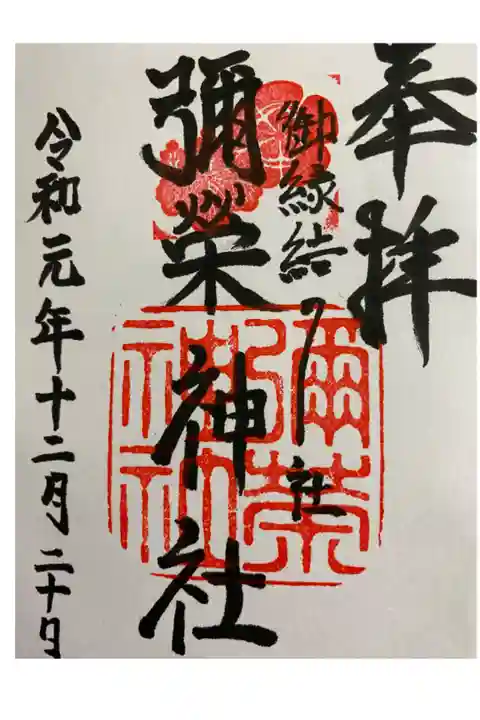 奉拝
御縁結ノ社
彌榮神社
令和元年十二月二十日
彌榮
神社